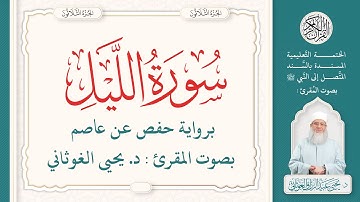 الجزء الثلاثون
الجزء الثلاثون
سُورَةُ اللَّيْلِ
برواية حفص عن عاصم
بصوت المقرئ : د. يحيى الغوثاني
القرآن الكريم
الختمة التعليمية
المسندة بالسَّند
المتَّصل إلى النَّبي ﷺ
بصوت المُقرئ :
د. يحيى عبد الرزاق الغوثاني